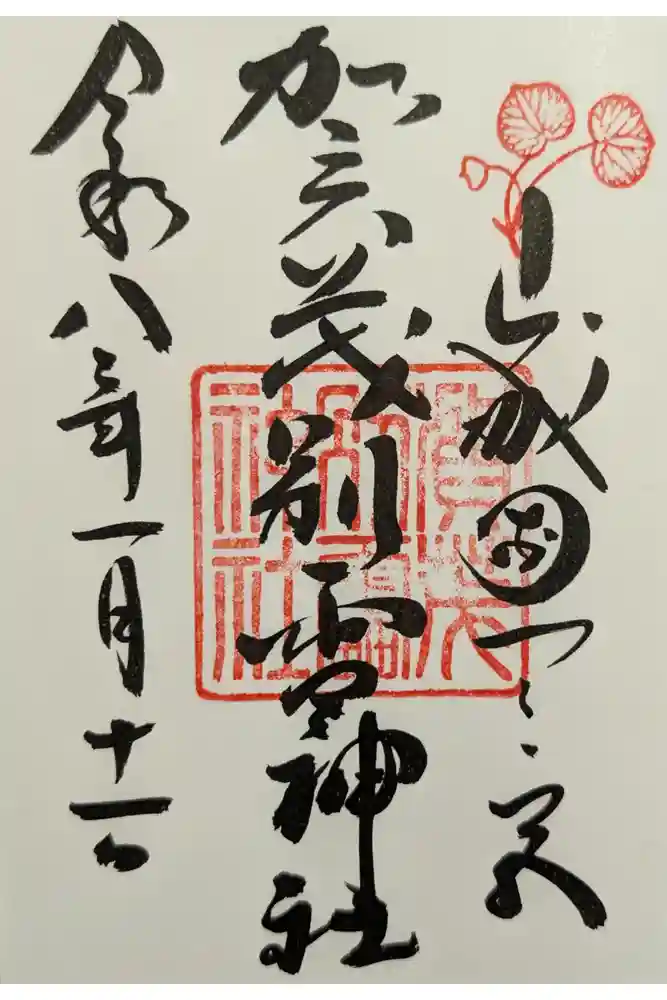 山城國一之宮
賀茂別雷神社
令和八年一月十一日
賀茂
別雷
神社